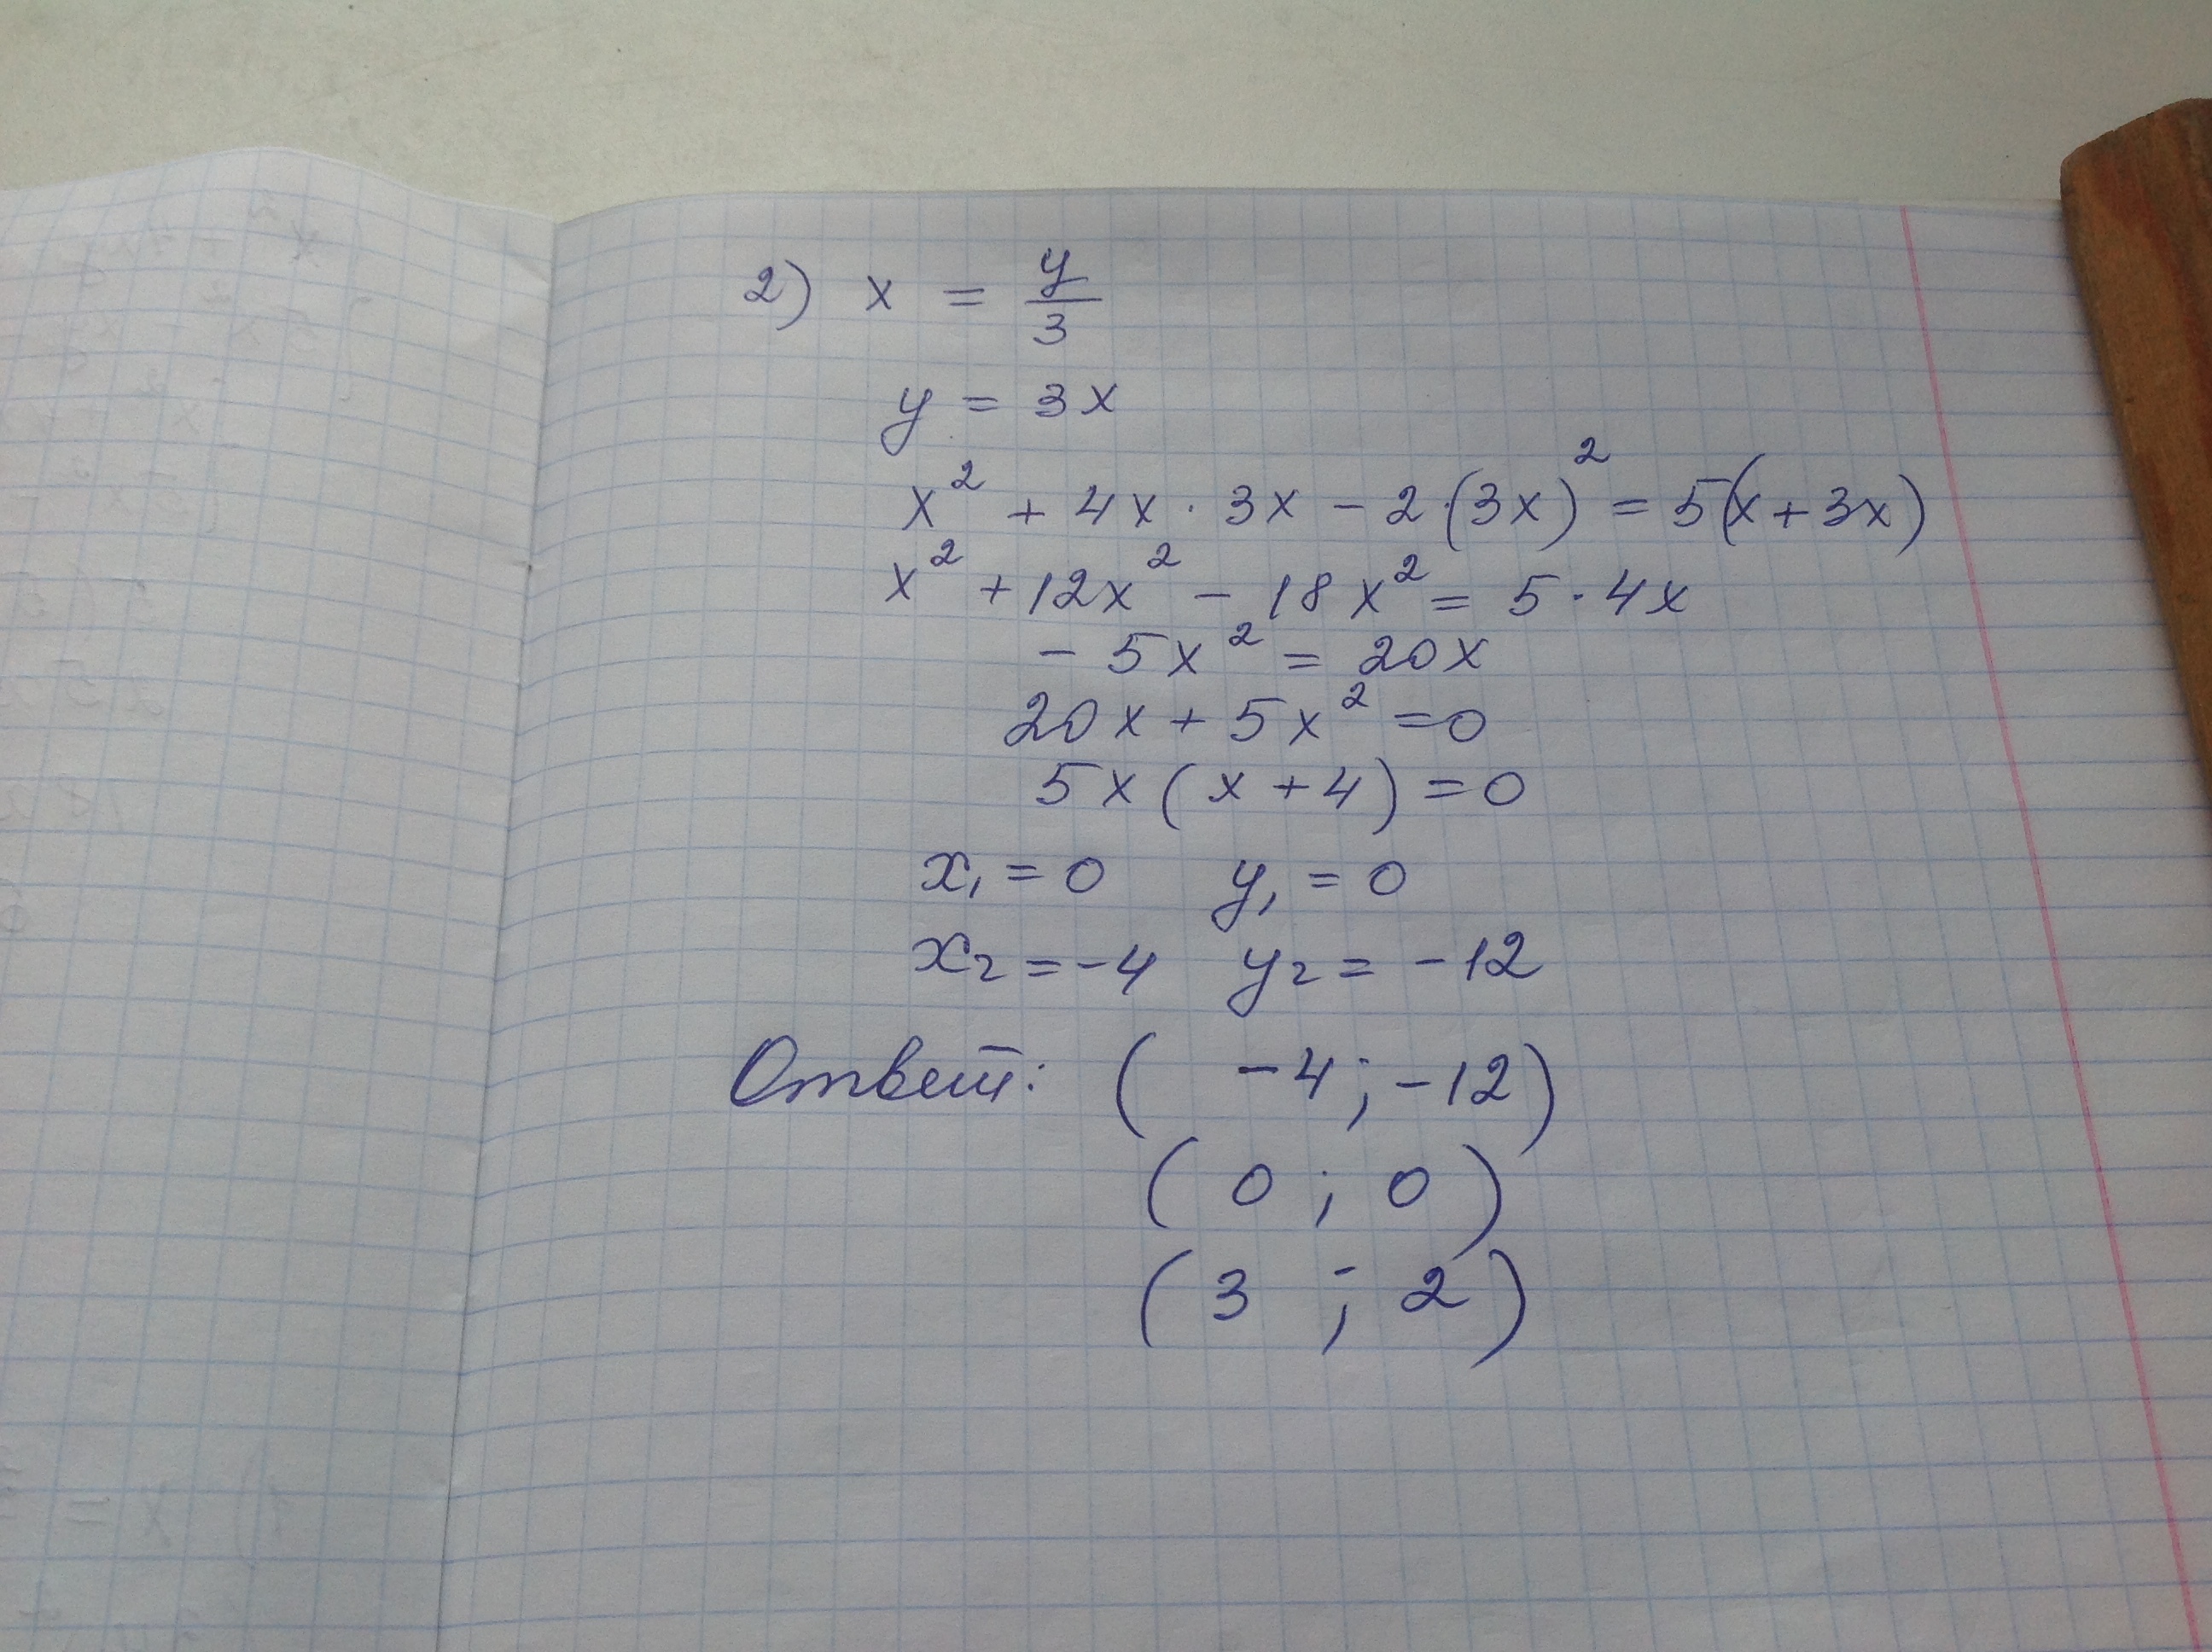 2) x = y/3
y = 3x
x² + 4x · 3x − 2·(3x)² = 5(x + 3x)
x² + 12x² − 18x² = 5 · 4x
− 5x² = 20x
20x + 5x² = 0
5x (x + 4) = 0
x₁ = 0 y₁ = 0
x₂ = −4 y₂ = −12
Ответ: ( −4 ; −12)
( 0 ; 0 )
( 3 ; 2 )